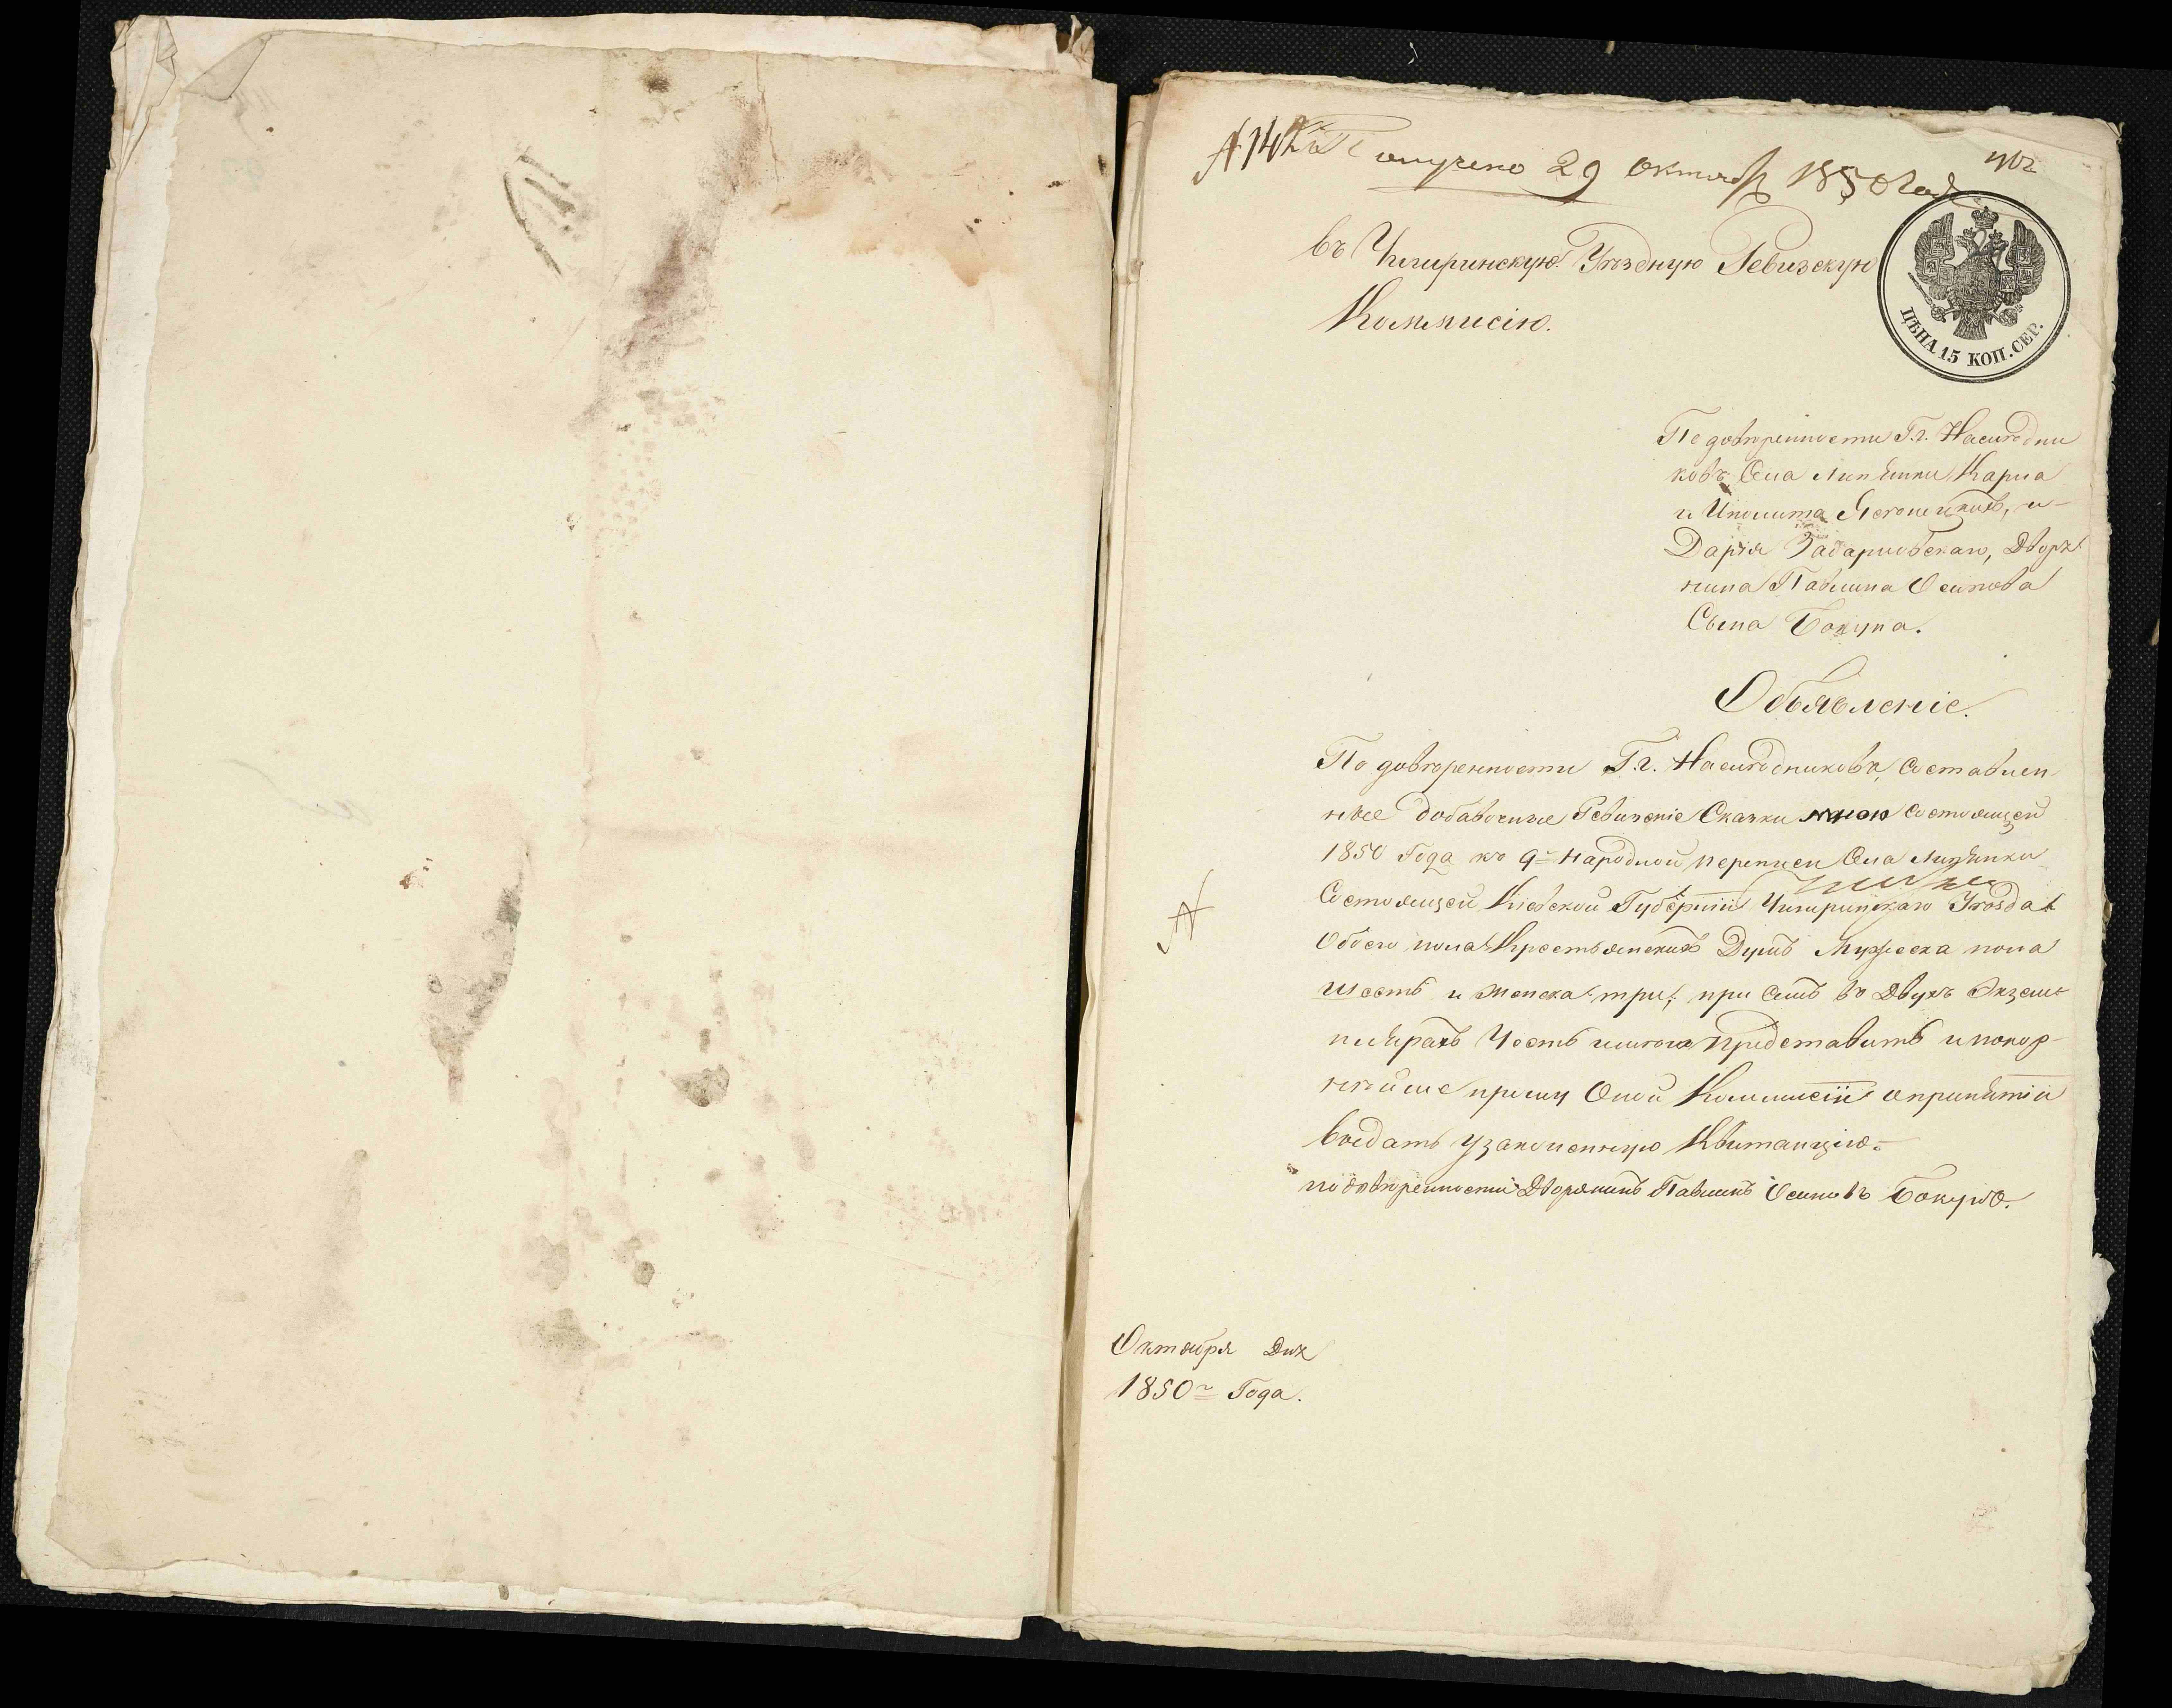 Получено 29 октября 1850 года
въ Чигиринскую Уѣздную Ревизскую
Коммисію.
ЦѢНА 15 КОП. СЕР.
По довѣренности Г.г. Наслѣдни
ковъ Села Липянки Карла
и Иполита и
Дарія Дворя
нина Павлина Осипова
Сына
Объявленіе.
По довѣренности Г.г. Наслѣдниковъ, Составлен
ные добавочные Ревизскіе Сказки мною Состоящей
1850 Года къ 9й Народной переписи Села Липянки
Состоящей Кіевской Губерніи Чигиринскаго Уѣзда
Обоего пола Крестьянскихъ Душъ Мужеска пола
шесть и женска три, при семъ въ Двухъ Экзем
плярахъ Честь имѣю Представить и покор
нѣйше прошу Оной Коммисіи опринятіи
выдать узаконенную Квитанцію.
по довѣренности Дворянинъ Павлинъ Осиповъ
Октября Дня
1850го Года.